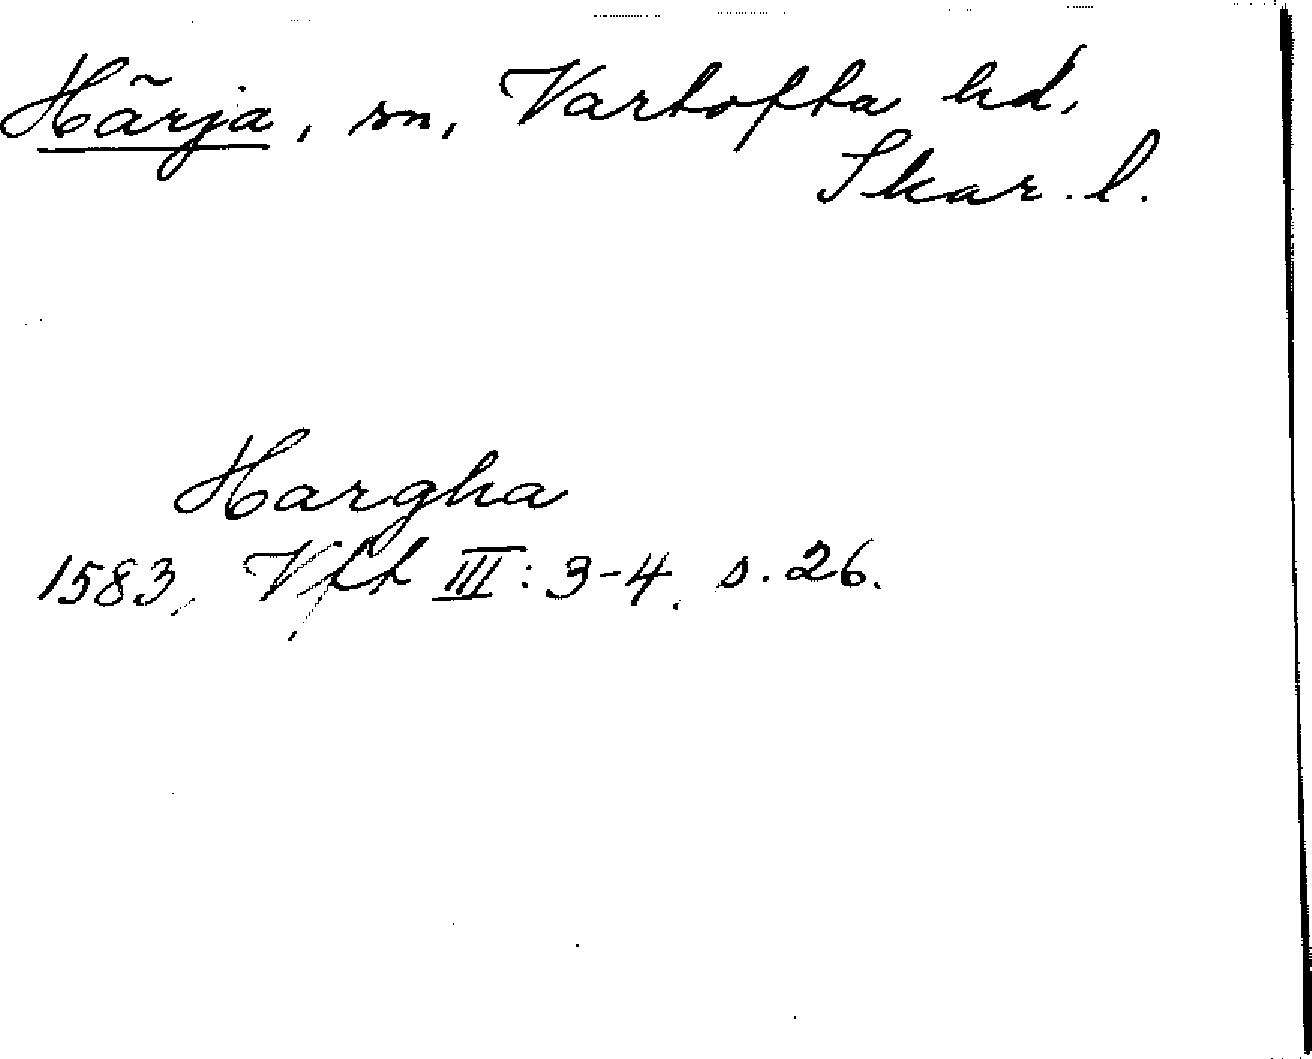 Härja, sn, Vartofta hd,
Skar. l.
Hargha
1583, Vft III: 3-4. s. 26.